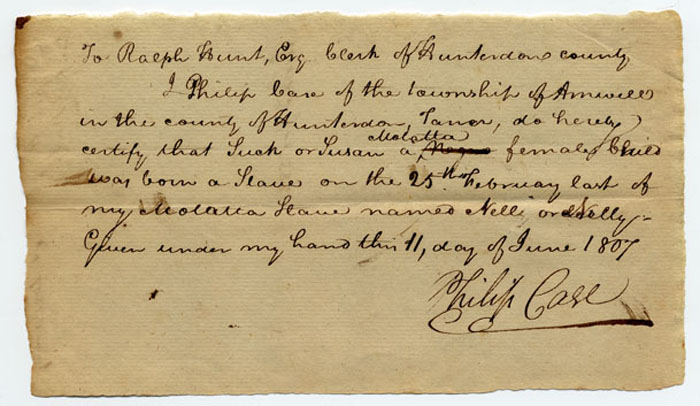 To Ralph Hunt, Esq Clerk of Hunterdon county
I Philip Case of the township of Amwell
in the county of Hunterdon, Tanor, do hereby
certify that Suck or Susan a, Molatta Negro female Child
was born a Slave on the 25th February last of
my Molatta Slave named Nell or Nelly
Given under my hand this 11, day of June 1807
Philip Case